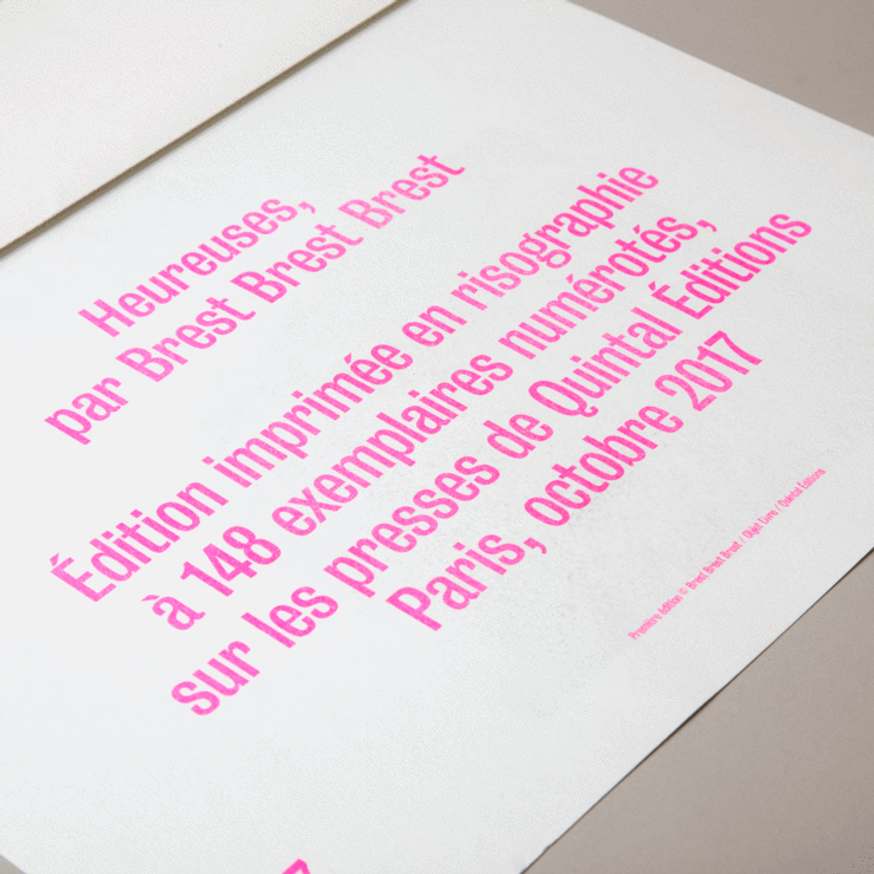 Heureuses,
par Brest Brest Brest
Édition imprimée en risographie
à 148 exemplaires numérotés,
sur les presses de Quintal Éditions
Paris, octobre 2017
Première édition © Brest Brest Brest / Objet Livre / Quintal Éditions